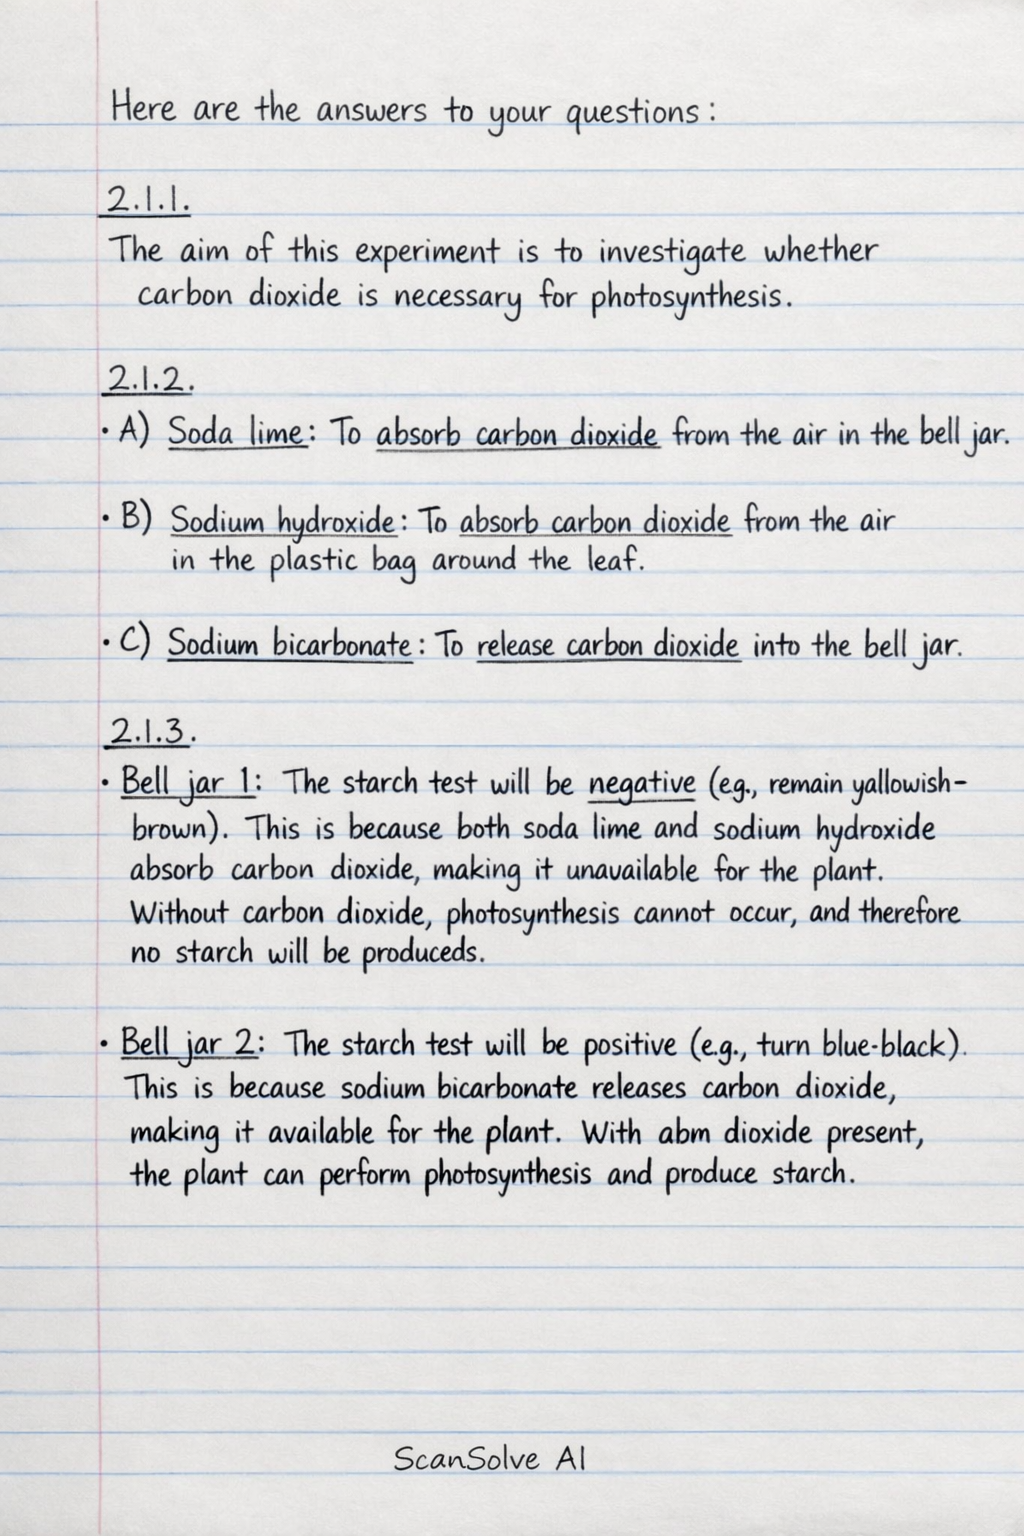 Here are the answers to your questions:
2.1.1.
The aim of this experiment is to investigate whether
carbon dioxide is necessary for photosynthesis.
2.1.2.
• A) Soda lime: To absorb carbon dioxide from the air in the bell jar.
• B) Sodium hydroxide: To absorb carbon dioxide from the air
in the plastic bag around the leaf.
• C) Sodium bicarbonate: To release carbon dioxide into the bell jar.
2.1.3.
• Bell jar 1: The starch test will be negative (eg., remain yallowish-
brown). This is because both soda lime and sodium hydroxide
absorb carbon dioxide, making it unavailable for the plant.
Without carbon dioxide, photosynthesis cannot occur, and therefore
no starch will be produceds.
• Bell jar 2: The starch test will be positive (e.g., turn blue-black).
This is because sodium bicarbonate releases carbon dioxide,
making it available for the plant. With abm dioxide present,
the plant can perform photosynthesis and produce starch.
ScanSolve AI